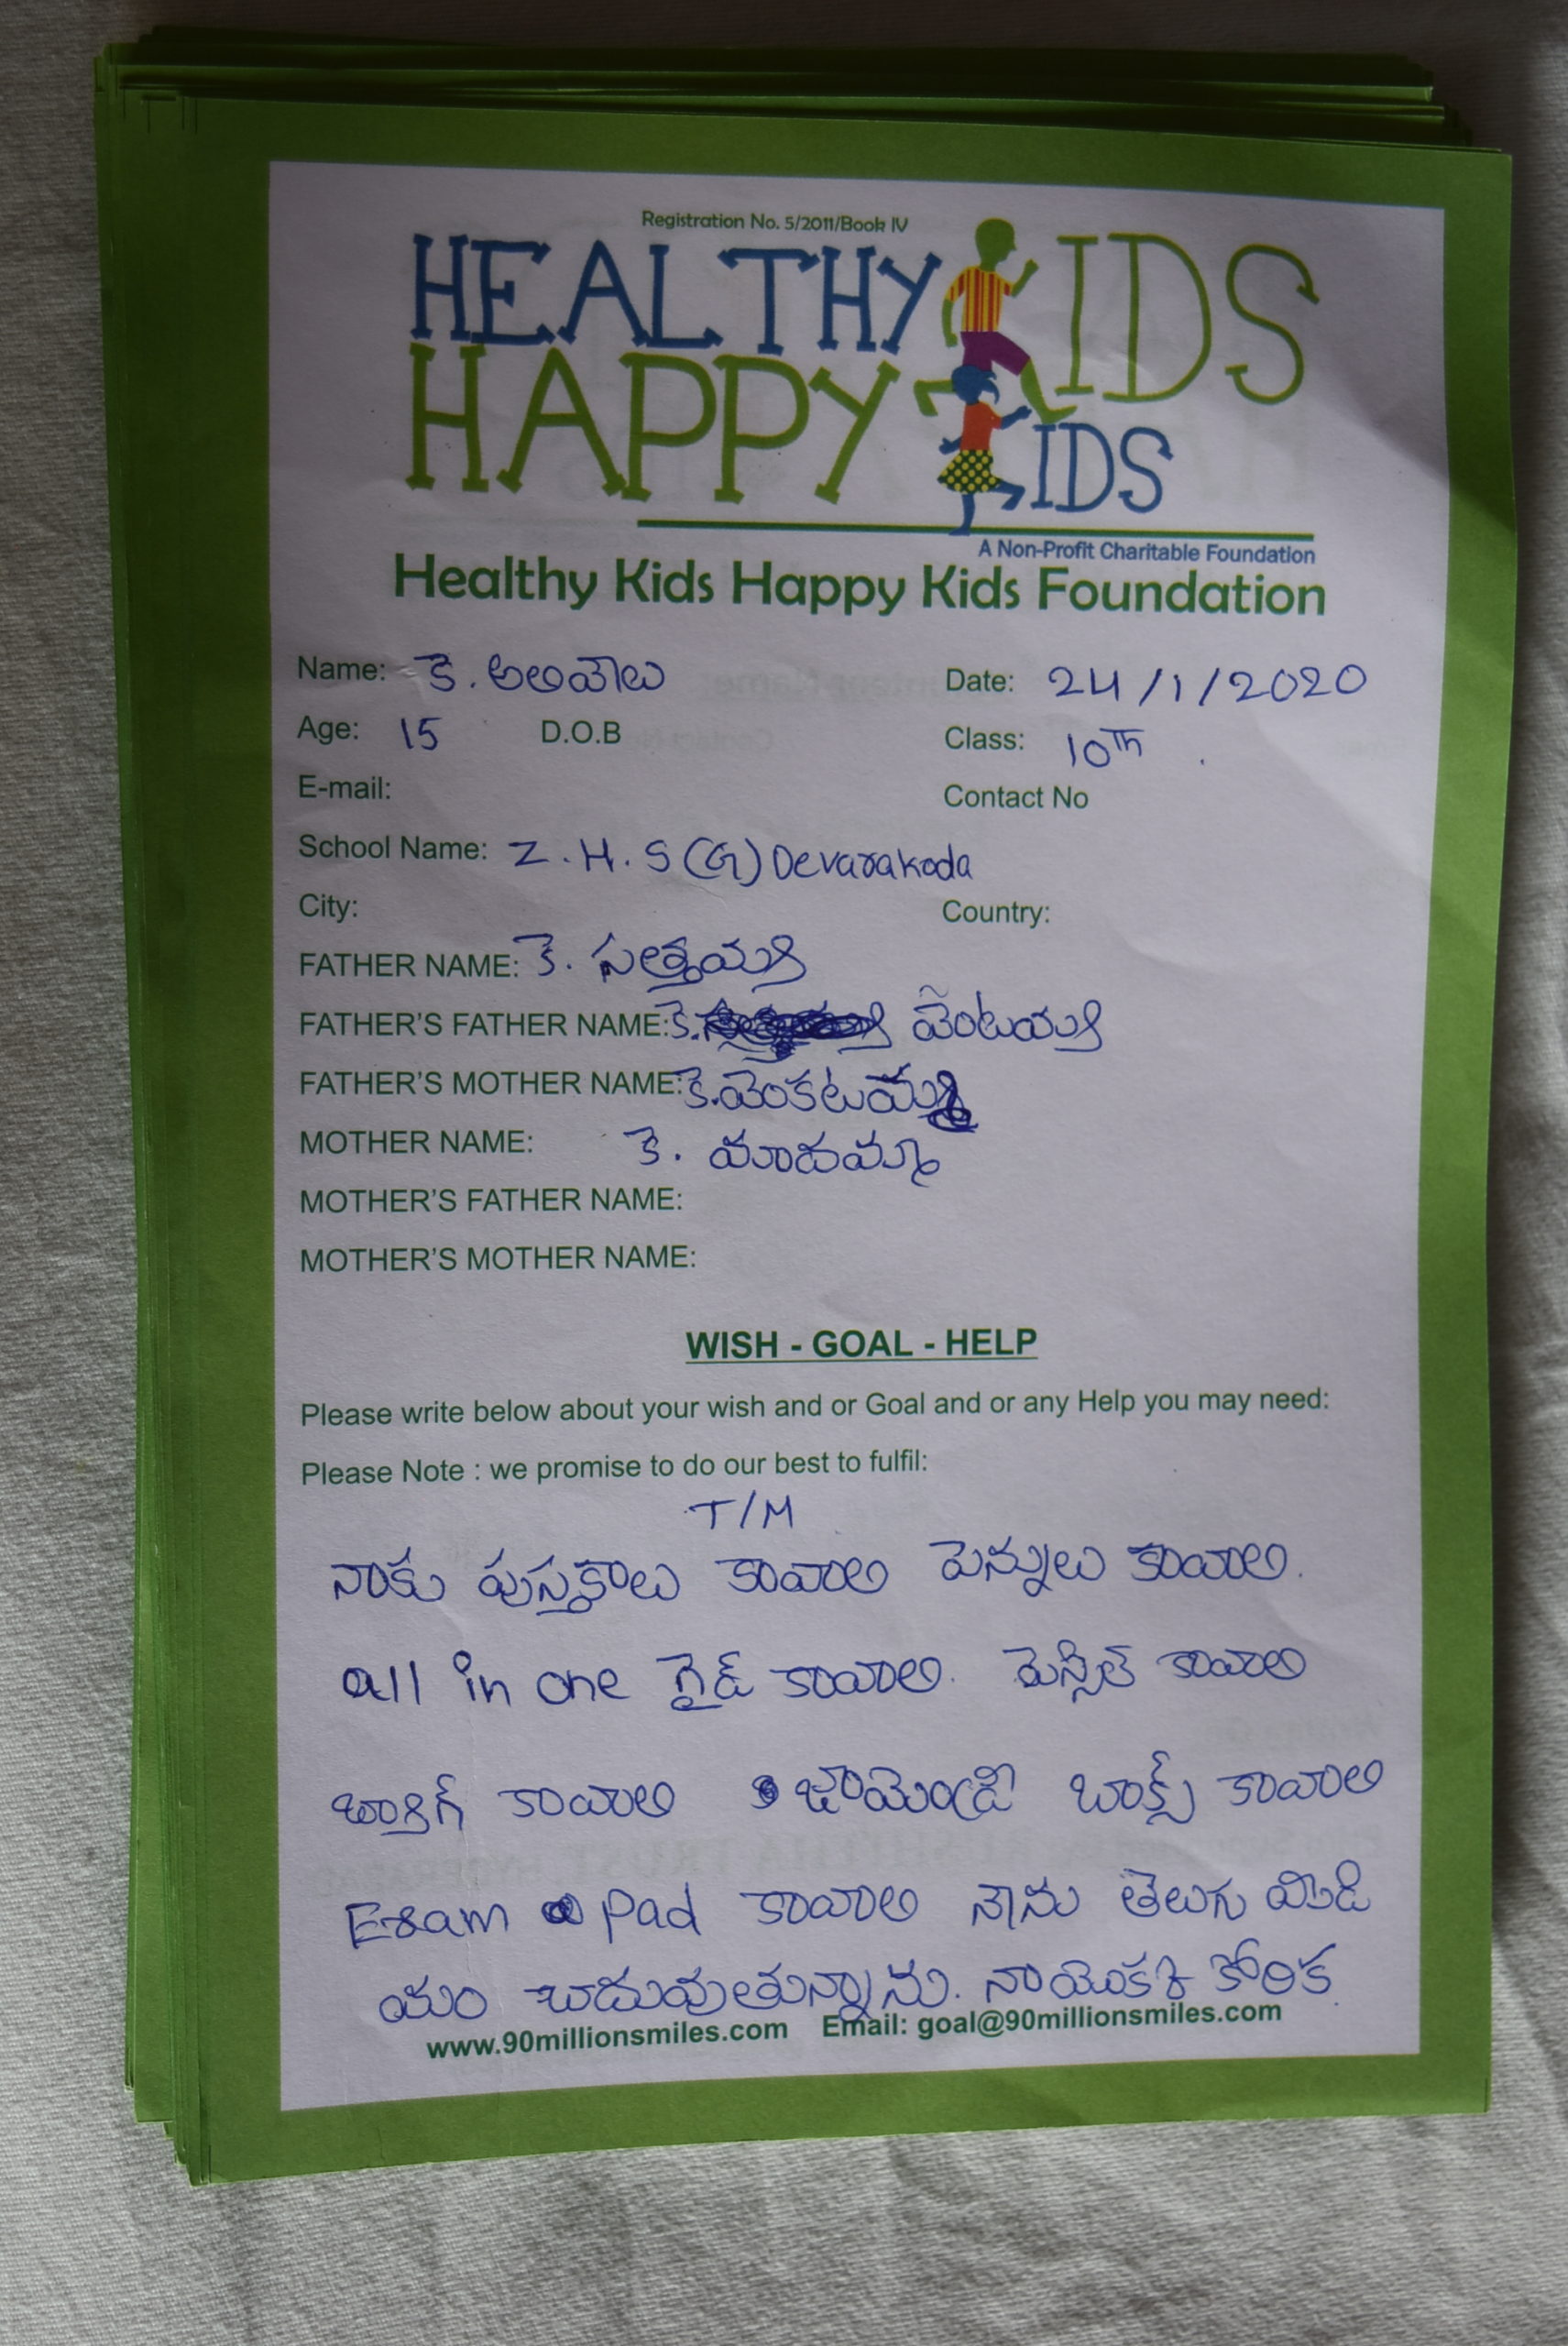 Registration No. 5/2011/Book IV
HEALTHY KIDS
HAPPY KIDS
A Non-Profit Charitable Foundation
Healthy Kids Happy Kids Foundation
Name: కె. అలివేలు Date: 24/1/2020
Age: 15 D.O.B Class: 10Th
E-mail: Contact No
School Name: Z.H.S (G) Devarakoda
City: Country:
FATHER NAME: కె. సత్తయ్య
FATHER'S FATHER NAME: కె. వెంటయ్య
FATHER'S MOTHER NAME: కె. వెంకటమ్మ
MOTHER NAME: కె. యాదమ్మ
MOTHER'S FATHER NAME:
MOTHER'S MOTHER NAME:
WISH - GOAL - HELP
Please write below about your wish and or Goal and or any Help you may need:
Please Note : we promise to do our best to fulfil:
T/M
నాకు పుస్తకాలు కావాలి పెన్నులు కావాలి.
all in one గైడ్ కావాలి. పెన్సిల్ కావాలి
బ్యాగ్ కావాలి జామెంట్రి బాక్స్ కావాలి
Exam Pad కావాలి నేను తెలుగు మిడి
యం చదువుతున్నాను. నాయొక్క కోరిక
www.90millionsmiles.com Email: goal@90millionsmiles.com